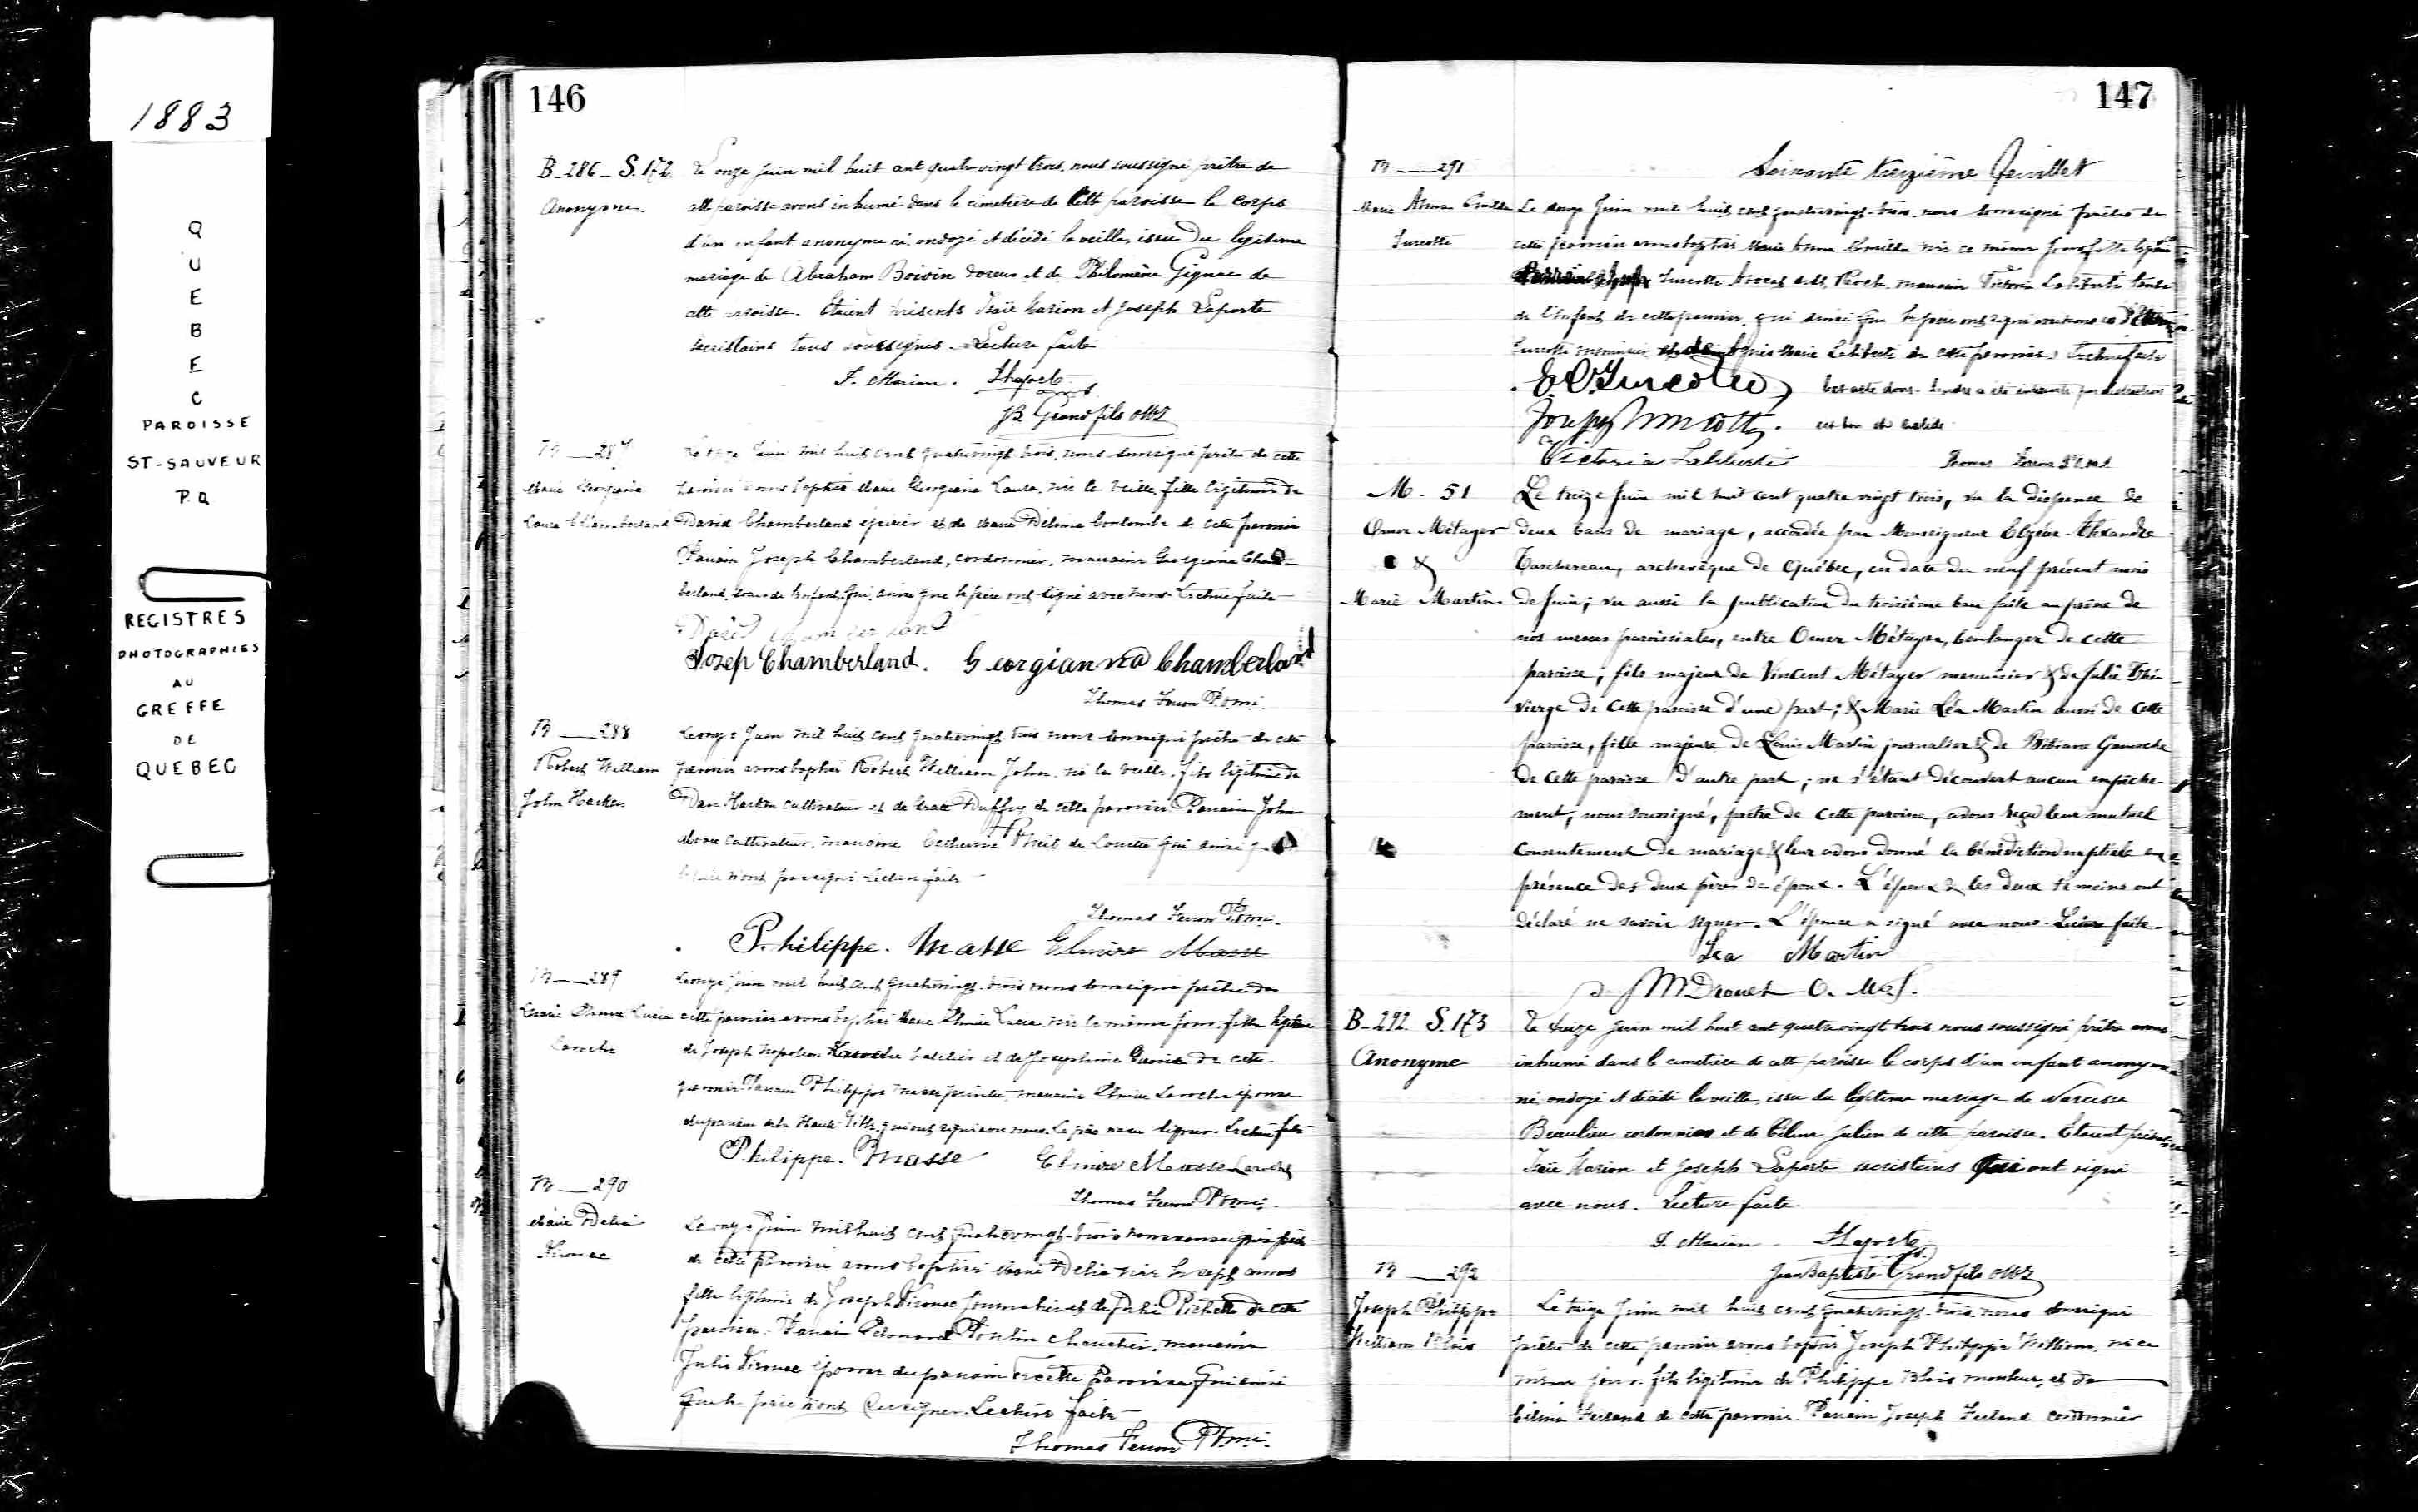 1883
QUEBEC
PAROISSE
ST-SAUVEUR
P.Q
REGISTRES
PHOTOGRAPHIES
AU
GREFFE
DE
QUEBEC
146
B_286_S.172.
Anonyme.
Le onze juin mil huit cent quatre-vingt trois, nous soussigné prêtre de
cette paroisse avons inhumé dans le cimetière de cette paroisse le corps
d'un enfant anonyme né, ondoyé et décédé la veille, issu du légitime
mariage de Abraham Boivin et de Philomène Gignac de
cette paroisse. Étaient présents Isaïe Marion et Joseph Laporte
sacristains tous soussignés. Lecture faite
I. Marion. J Laporte
JB Grandfils OMI
B__287
Marie Georgiana
Laura Chamberland
Le onze Juin mil huit cent quatrevingt-trois, nous soussigné prêtre de cette
paroisse avons baptisé Marie Georgiana Laura, née la veille, fille légitime de
David Chamberland épicier et de Marie Délima Coulombe de cette paroisse
Parrain Joseph Chamberland, cordonnier, marraine Georgiana Cham-
berland, de l'enfant, qui, ainsi que le père ont signé avec nous. Lecture faite
David Chamberland
Jozep Chamberland. Georgianna Chamberland
Thomas Ferron Ptre
B__288
Robert William
John Harken
Le onze Juin mil huit cent quatrevingt-trois nous soussigné prêtre de cette
paroisse avons baptisé Robert William John, né la veille, fils légitime de
Dan Harken cultivateur et de Duffey de cette paroisse Parrain John
cultivateur, marraine Catherine de Lorette qui ainsi que
le père n'ont pas signé Lecture faite
Thomas Ferron Ptre
P.hilippe. Masse Elmire Masse
B__289
Marie Lucia
Laroche
Le onze juin mil huit cent quatrevingt-trois nous soussigné prêtre de
cette paroisse avons baptisé Marie Lucia, née le même jour, fille légitime
de Joseph Napoléon Laroche et de Josephine de cette
paroisse. Parrain Philippe Masse peintre, marraine Elmire Laroche épouse
du parrain de la Haute Ville, qui ont signé avec nous. Le père n'a su signer. Lecture faite
P.hilippe. Masse Elmire Masse Laroche
Thomas Ferron Ptre
B__290
Marie Delia
Kirouac
Le onze Juin mil huit cent quatrevingt-trois nous soussigné prêtre
de cette Paroisse avons baptisé Marie Delia née le sept
fille légitime de Joseph Kirouac Journalier et de Pichette de cette
paroisse. Parrain Edouard charretier, marraine
Julie Kirouac épouse du parrain de cette Paroisse qui ainsi
que le père n'ont su signer. Lecture faite
Thomas Ferron Ptre
147
Soixante treizième feuillet
B__291
Marie Anna
Turcotte
Le douze Juin mil huit cent quatrevingt-trois, nous soussigné prêtre de
cette paroisse avons baptisé Marie Anna née ce même jour fille légitime
Turcotte de St. Roch, marraine Victoria Laliberté tante
de l'enfant de cette paroisse, qui ainsi que le père ont signé avec nous
Turcotte menuisier, Marie Laliberté de cette paroisse. Lecture faite
Turcotte
Joseph Turcotte.
est bon et valide
Victoria Laliberté
Thomas Ferron
M. 51
Omer Métayer
&
Marie Martin.
Le treize Juin mil huit cent quatre vingt trois, vu la dispense de
deux bans de mariage, accordée par Monseigneur Elzéar-Alexandre
Taschereau, archevêque de Québec, en date du neuf présent mois
de Juin; vu aussi la publication du troisième ban faite au prône de
nos messes paroissiales, entre Omer Métayer, boulanger de cette
paroisse, fils majeur de Vincent Métayer menuisier & de Julie Thi-
vierge de cette paroisse d'une part; & Marie Léa Martin aussi de cette
paroisse, fille majeure de Louis Martin journalier & de Bibiane Gamache
de cette paroisse d'autre part; ne s'étant découvert aucun empêche-
ment, nous soussigné, prêtre de cette paroisse, avons reçu leur mutuel
consentement de mariage & leur avons donné la bénédiction nuptiale en
présence des deux pères des époux. L'époux & les deux témoins ont
déclaré ne savoir signer. L'épouse a signé avec nous. Lecture faite.
Lea Martin
Drouet O.M.I.
B_292. S.173
Anonyme
Le treize Juin mil huit cent quatrevingt trois, nous soussigné prêtre avons
inhumé dans le cimetière de cette paroisse le corps d'un enfant anonyme
né, ondoyé et décédé la veille, issu du légitime mariage de Narcisse
Beaulieu cordonnier et de Célina Julien de cette paroisse. Étaient présents
Isaïe Marion et Joseph Laporte sacristains qui ont signé
avec nous. Lecture faite.
I. Marion J Laporte
Jean Baptiste Grandfils OMI
B__292
Joseph Philippe
William Blais
Le treize Juin mil huit cent quatrevingt-trois, nous soussigné
prêtre de cette paroisse avons baptisé Joseph Philippe William, né ce
même jour, fils légitime de Philippe Blais mouleur, et de
Célina Ferland de cette paroisse. Parrain Joseph Ferland cordonnier